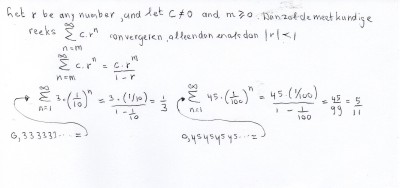 Let r be any number, and let C ≠ 0 and m ≥ 0. Dan zal de meetkundige
reeks ∞∑n=m c.rⁿ convergeren, alleen dan en als dan |r| < 1
∞∑n=m c.rⁿ = c.rᵐ / 1 - r
∞∑n=1 3.(1/10)ⁿ = 3.(1/10) / 1 - 1/10 = 1/3 ∞∑n=1 45.(1/100)ⁿ = 45.(1/100) / 1 - 1/100 = 45/99 = 5/11
0,333333... = 0,45454545... =